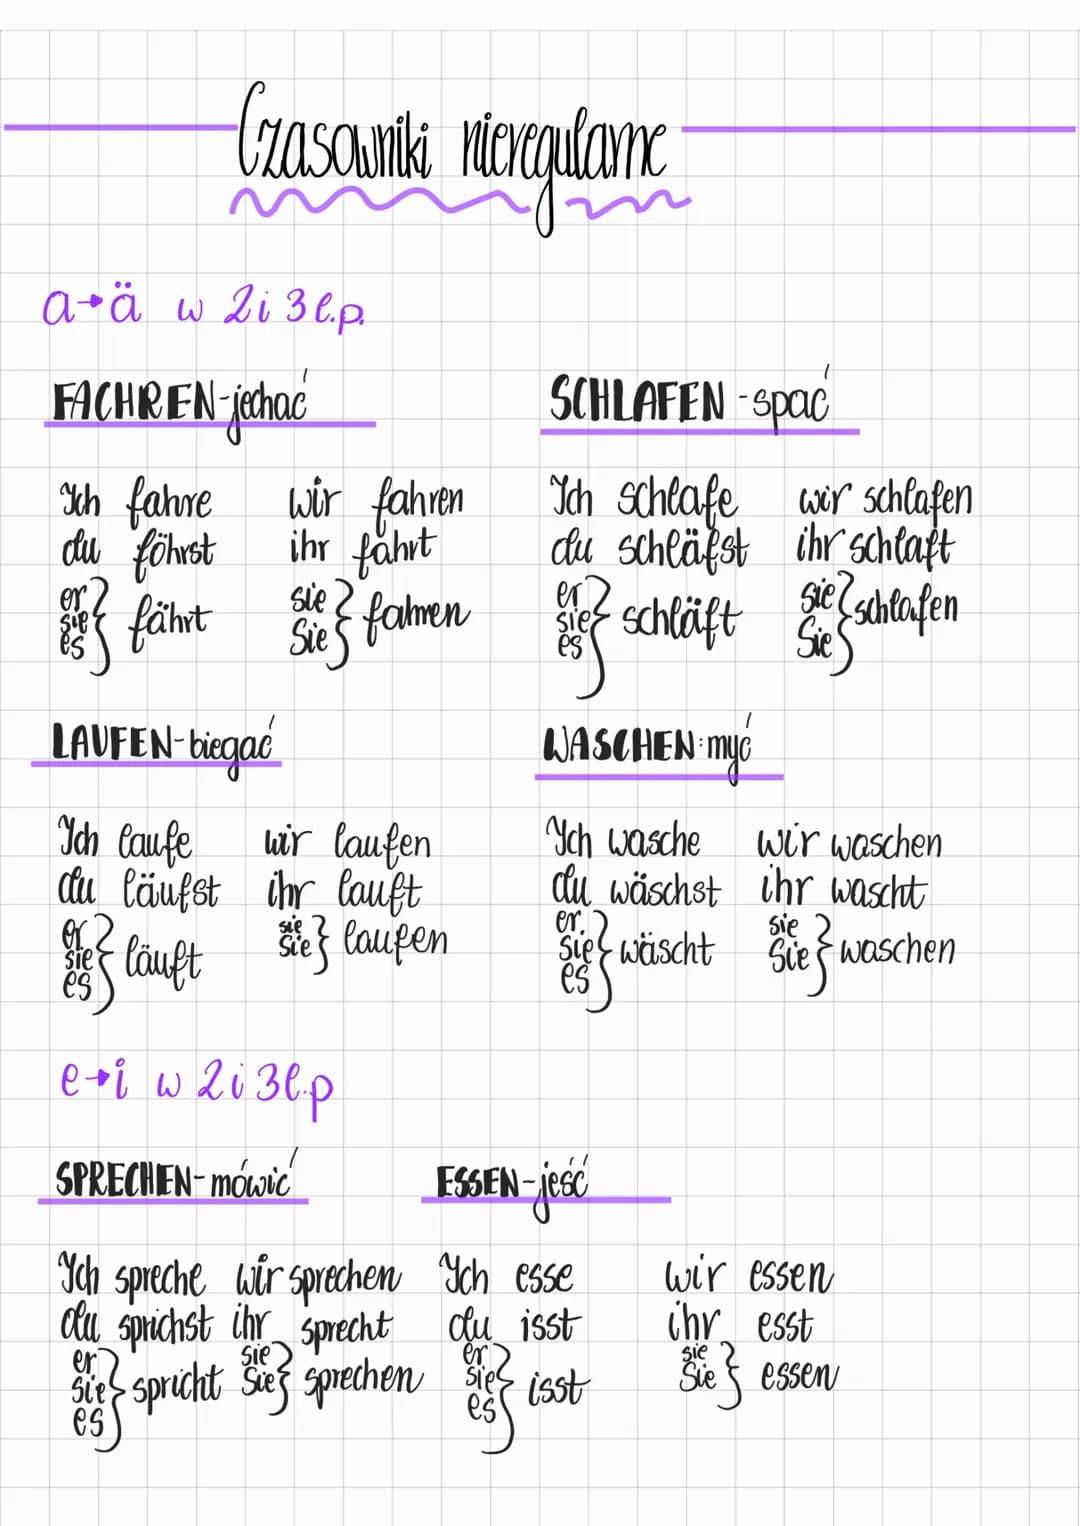 Czasowniki nieregularne
a→ä w 2 i 3 l.p.
FACHREN-jechać
Ich fahre wir fahren
du föhrst ihr fährt
er
sie
es } fährt
sie
Sie } fahren
SCHLAFEN - spać
Ich schlafe wir schlafen
du schläfst ihr schlaft
er
sie
es } schläft
sie
Sie } schlafen
LAUFEN-biegać
Ich laufe wir laufen
du läufst ihr lauft
er
sie
es } läuft
sie
Sie } laufen
WASCHEN:myć
Ich wasche wir waschen
du wäschst ihr wascht
er
sie
es } wäscht
sie
Sie } waschen
e→i w 2 i 3 l.p
SPRECHEN-mówić
Ich spreche wir sprechen
du sprichst ihr sprecht
er
sie
es } spricht
sie
Sie } sprechen
ESSEN-jeść
Ich esse wir essen
du isst ihr esst
er
sie
es } isst
sie
Sie } essen